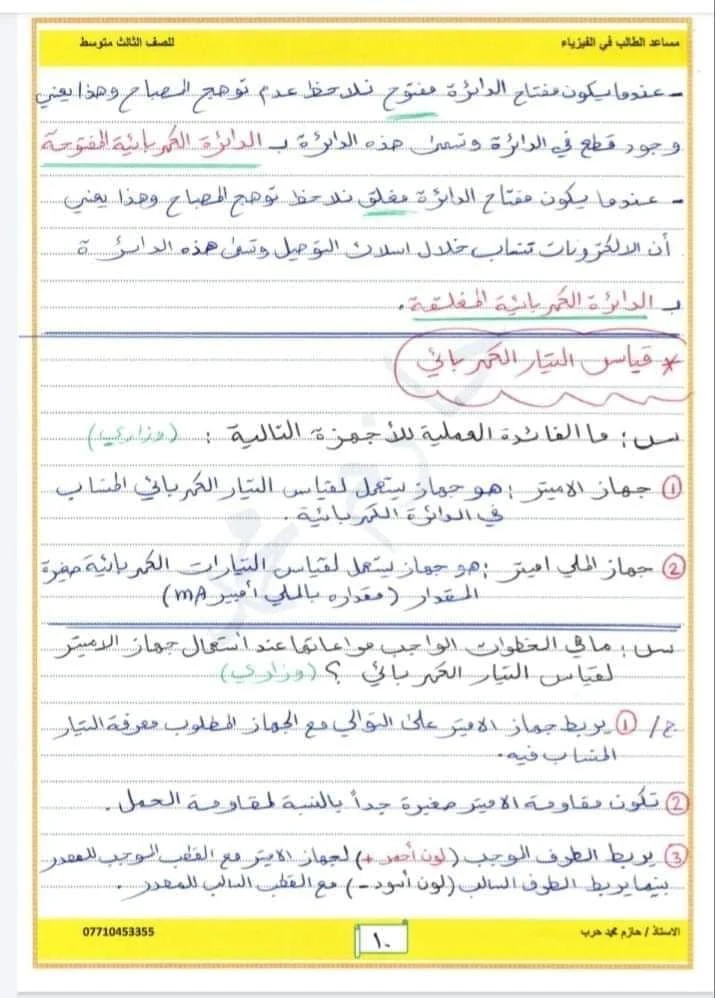 مساعد الطالب في الفيزياء
للصف الثالث متوسط
- عندما يكون مفتاح الدائرة مفتوح نلاحظ عدم توهج المصباح وهذا يعني
وجود قطع في الدائرة وتسمى هذه الدائرة بـ الدائرة الكهربائية المفتوحة
- عندما يكون مفتاح الدائرة مغلق نلاحظ توهج المصباح وهذا يعني
أن الالكترونات تنساب خلال اسلاك التوصيل وتسمى هذه الدائرة
بـ الدائرة الكهربائية المغلقة .
* قياس التيار الكهربائي
س : ما الفائدة العملية للأجهزة التالية : (وزاري)
① جهاز الاميتر : هو جهاز يستعمل لقياس التيار الكهربائي المنساب
في الدائرة الكهربائية .
② جهاز الملي اميتر : هو جهاز يستعمل لقياس التيارات الكهربائية صغيرة
المقدار ( مقداره بالملي أمبير mA )
س : ماهي الخطوات الواجب مراعاتها عند أستعمال جهاز الاميتر
لقياس التيار الكهربائي ؟ (وزاري)
ج/ ① يربط جهاز الاميتر على التوالي مع الجهاز المطلوب معرفة التيار
المنساب فيه .
② تكون مقاومة الاميتر صغيرة جداً بالنسبة لمقاومة الحمل .
③ يربط الطرف الموجب (لون أحمر +) لجهاز الاميتر مع القطب الموجب للمصدر
بينما يربط الطرف السالب (لون أسود -) مع القطب السالب للمصدر .
الاستاذ / حازم محمد حرب
١٠
07710453355